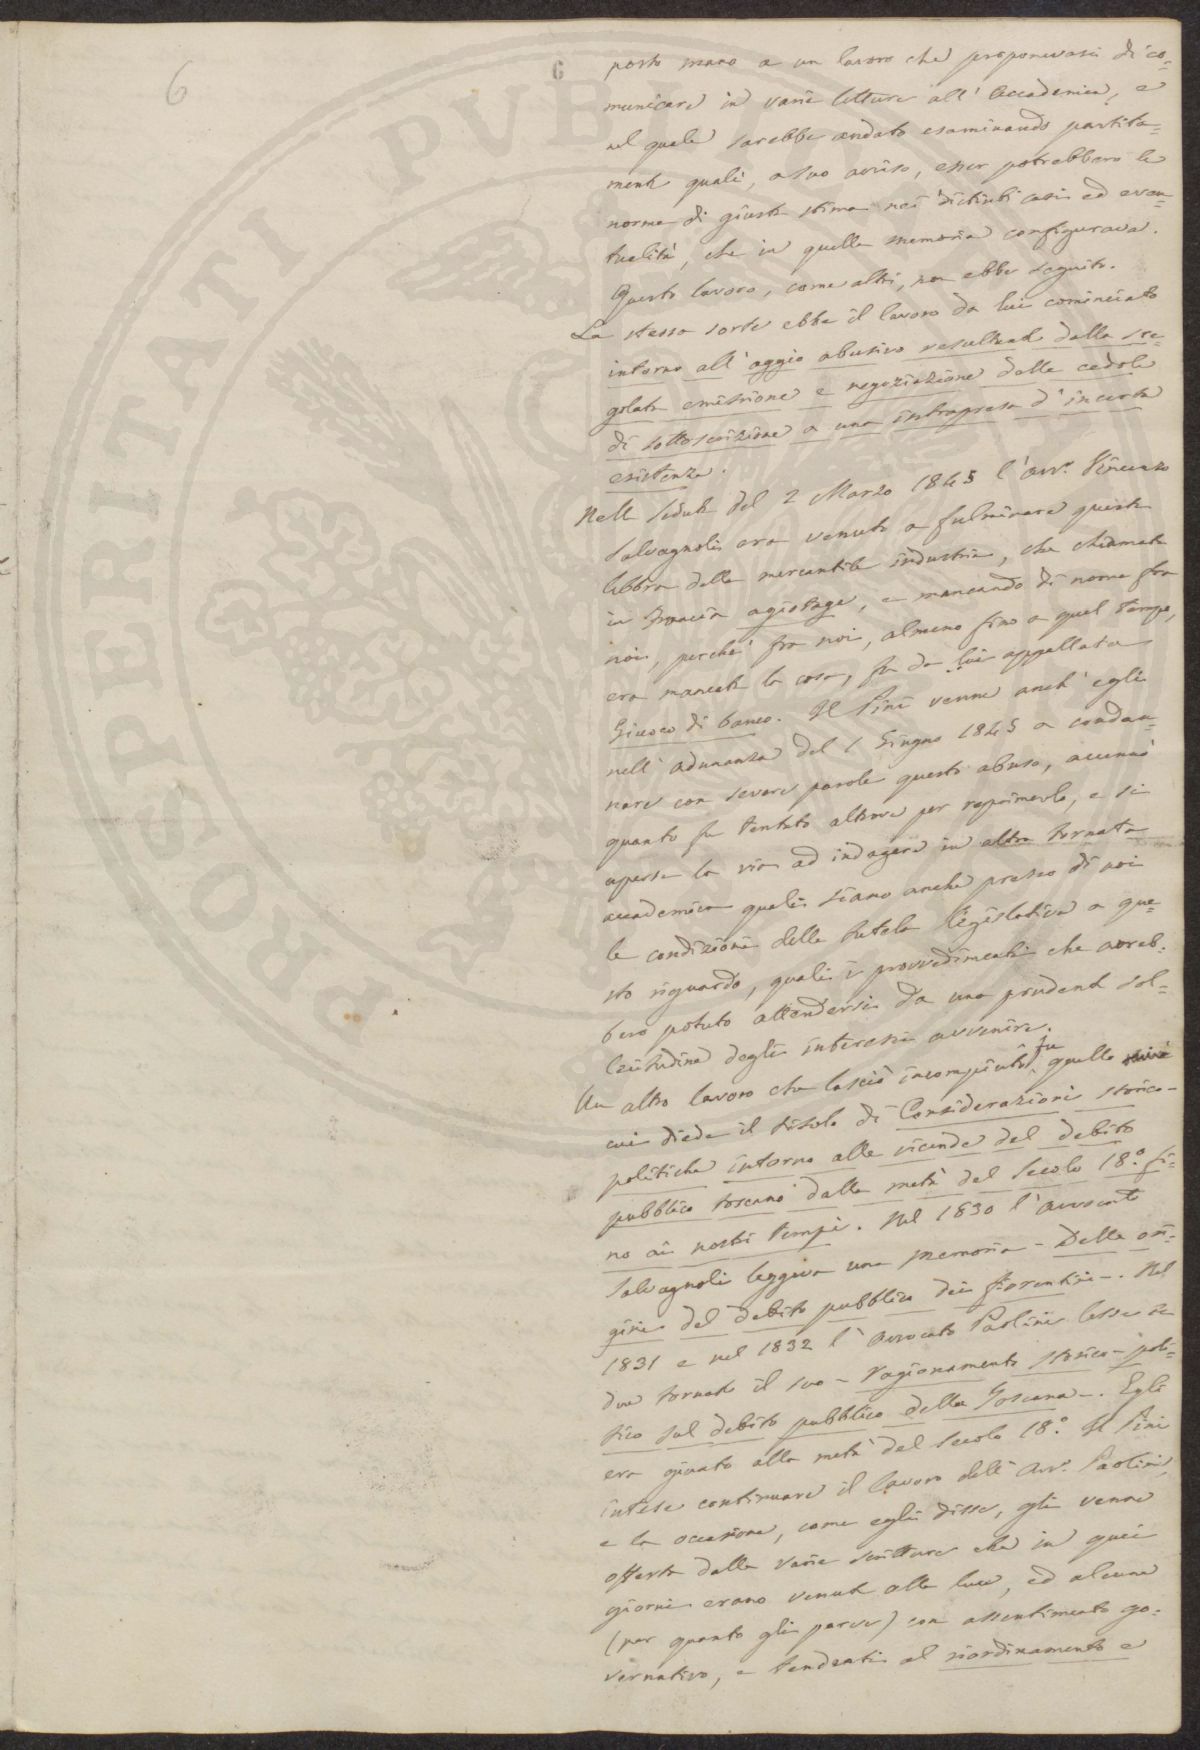 6
6
PROSPERITATI PUBLICAE
posto mano a un lavoro che proponevasi di co=
municare in varie letture all' Accademia, e
nel quale sarebbe andato esaminando partita=
mente quali, a suo avviso, esser potrebbero le
norme di giusta stima nei distinti casi ed even=
tualità, che in quella memoria configurava.
Questo lavoro, come altri, non ebbe seguito.
La stessa sorte ebbe il lavoro da lui cominciato
intorno all' aggio abusivo resultante dalla sre=
golata emissione e negoziazione delle cedole
di sottoscrizione a una intrapresa d' incerta
esistenza.
Nella seduta del 2 Marzo 1845 l' avv.º Vincenzo
Salvagnoli era venuto a fulminare questa
lebbra della mercantile industria, che chiamata
in Francia agiotage, e mancando di nome fra
noi, perchè fra noi, almeno fino a quel tempo,
era mancata la cosa, fu da lui appellata
Giuoco di banco. Il Pini venne anch' egli
nell' adunanza del 1 Giugno 1845 a condan=
nare con severe parole questo abuso, accennò
quanto fu tentato altrove per reprimerlo, e si
aperse la via ad indagare in altra tornata
accademica quali siano anche presso di noi
le condizioni della tutela legislativa a que=
sto riguardo, quali i provvedimenti che avreb=
bero potuto attendersi da una prudente sol=
lecitudine degli interessi avvenire.
Un altro lavoro che lasciò incompiuto fu quello
cui diede il titolo di Considerazioni storico-
politiche intorno alle vicende del debito
pubblico toscano dalla metà del Secolo 18.º fi=
no ai nostri tempi. Nel 1830 l' avvocato
Salvagnoli leggeva una memoria - Delle ori=
gini del debito pubblico dei fiorentini -. Nel
1831 e nel 1832 l' avvocato Paolini lesse in
due tornate il suo - Ragionamento storico-poli=
tico sul debito pubblico della Toscana -. Egli
era giunto alla metà del secolo 18.º Il Pini
intese continuare il lavoro dell' Avv.º Paolini,
e la occasione, come egli disse, gli venne
offerta dalle varie scritture che in quei
giorni erano venute alla luce, ed alcune
(per quanto gli parve) con assentimento go=
vernativo, e tendenti al riordinamento e